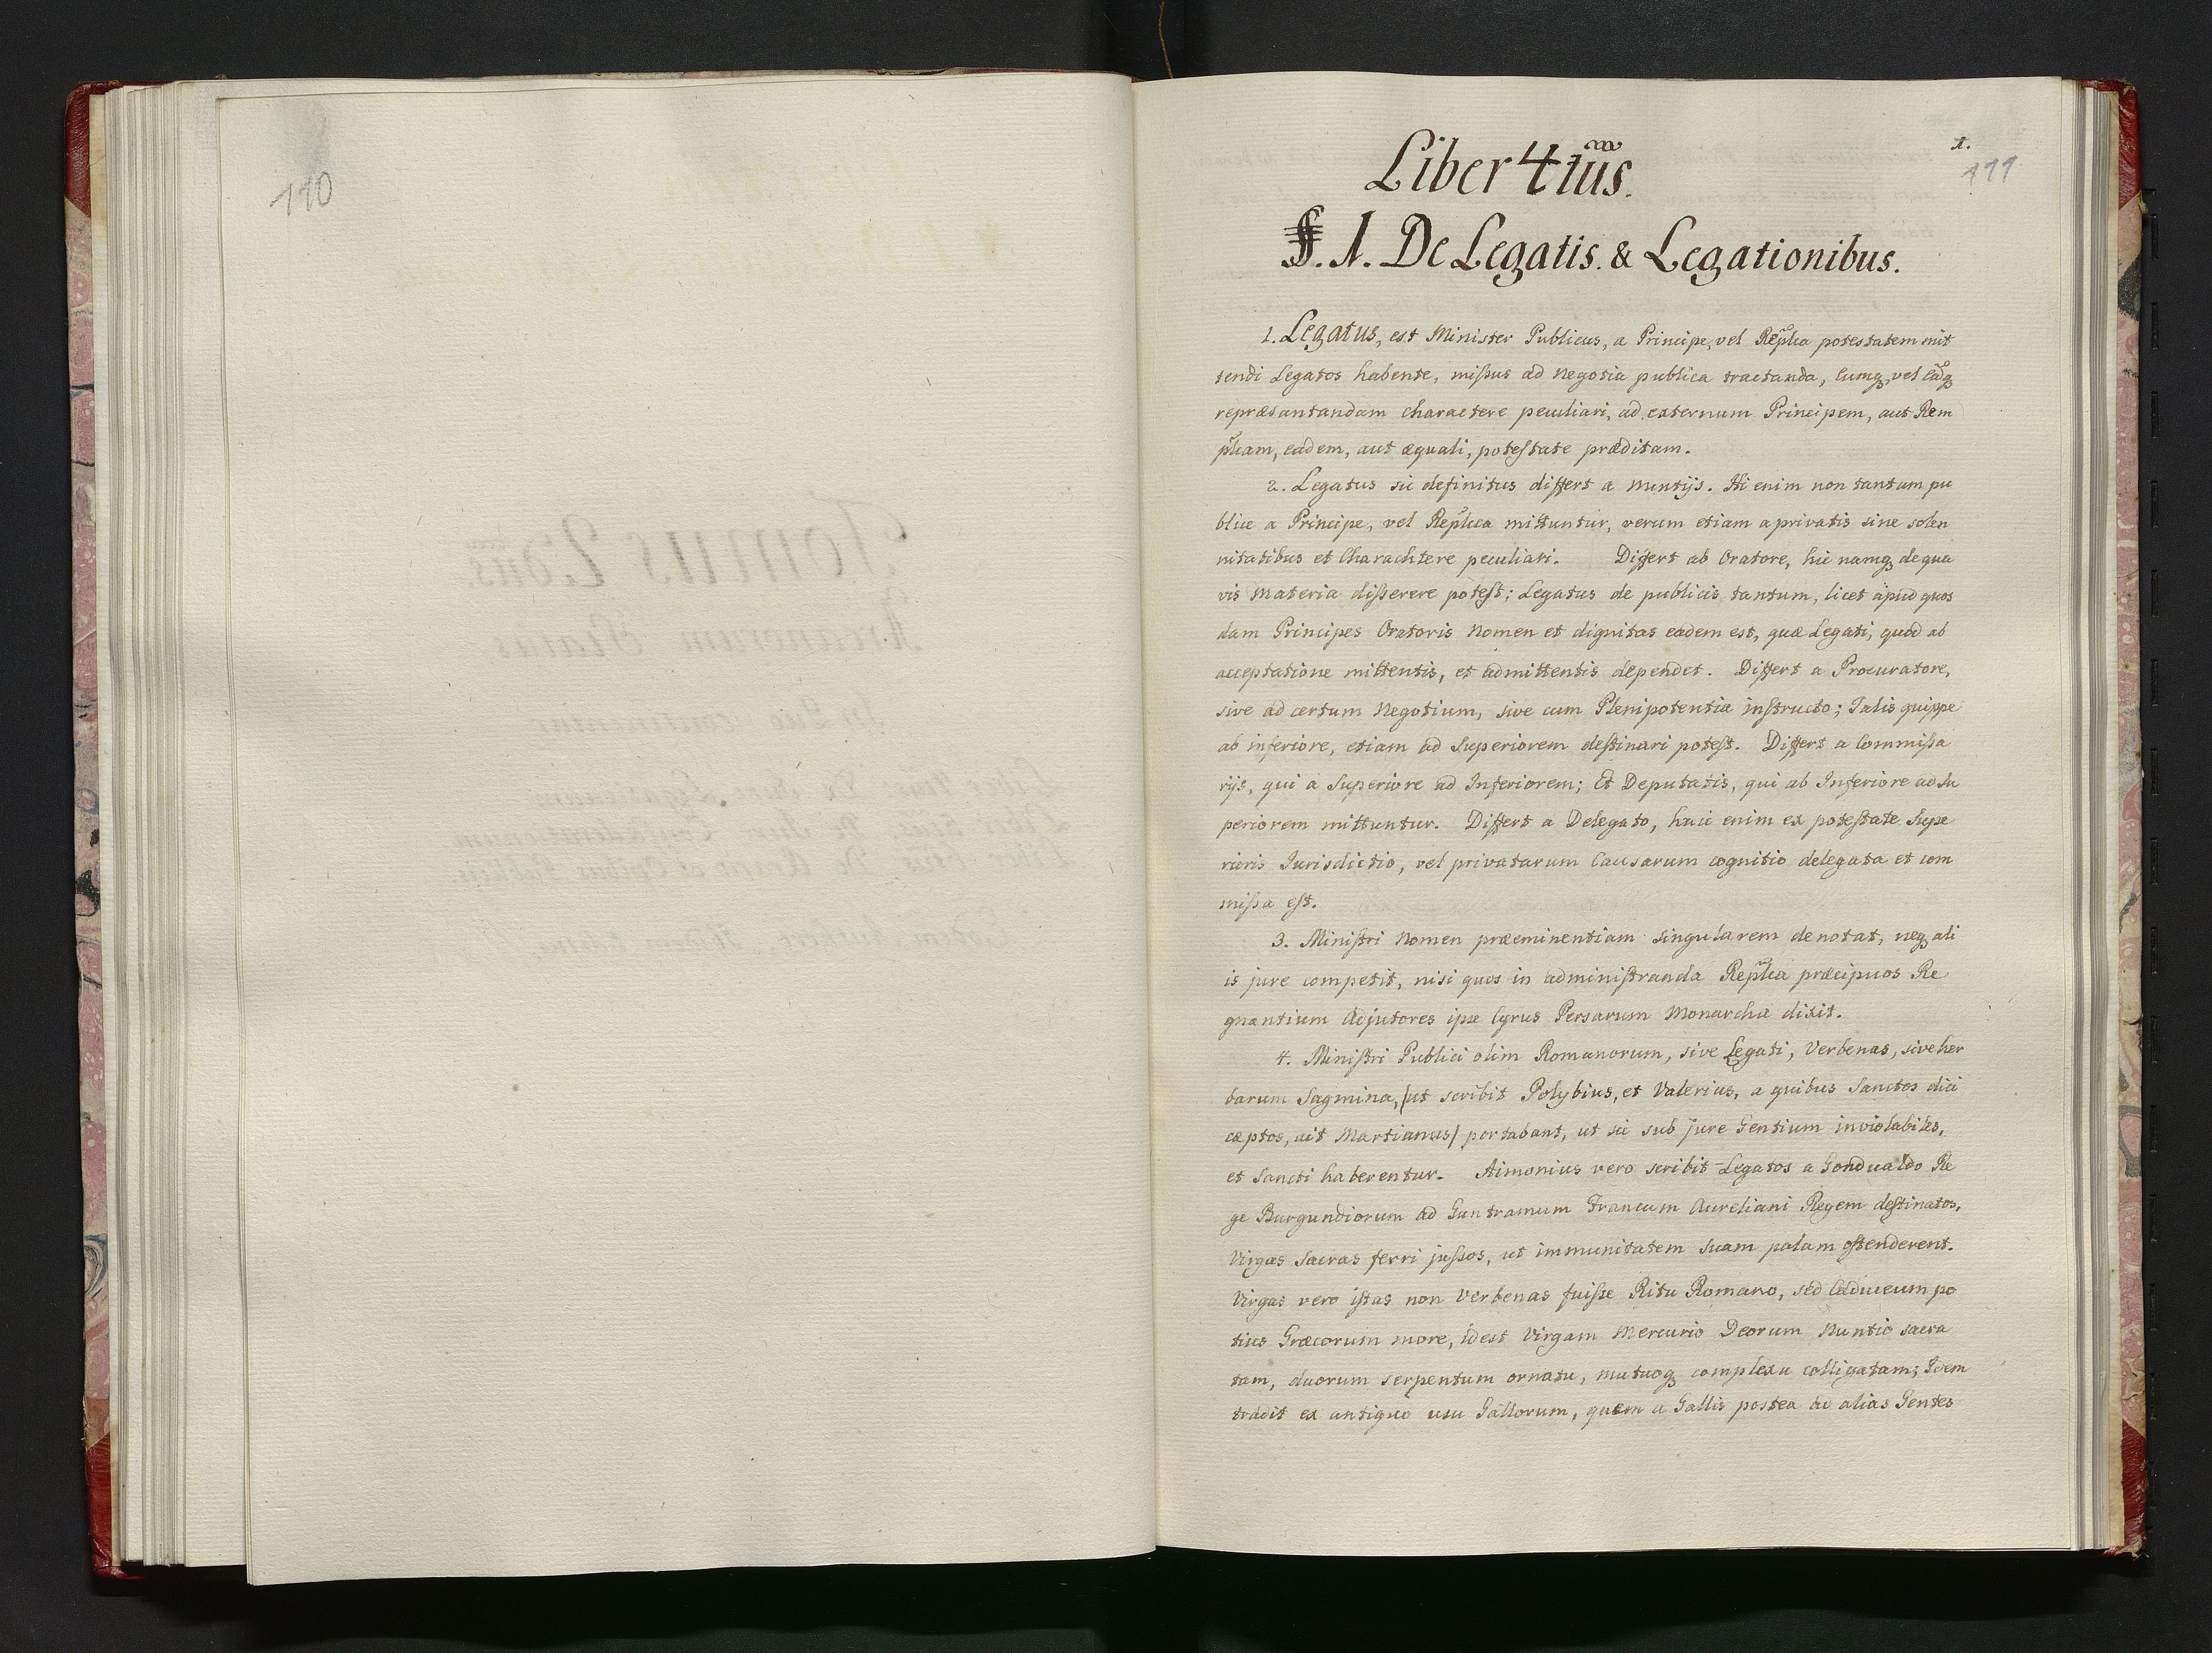 110
1.
111
Liber 4tus.
§. 1. De Legatis. & Legationibus.
1. Legatus, est Minister Publicus, a Principe, vel Repl̃ca potestatem mit
tendi Legatos habente, missus ad negotia publica tractanda, Eumq, vel Eãdq
repræsantandam charactere peculiari, ad externum Principem, aut Rem
pl̃cam, eadem, aut æquali, potestate præditam.
2. Legatus sic definitus differt a nuntijs. Hi enim non tantum pu
blice a Principe, vel Repl̃ica mittuntur, verum etiam a privatis sine solen
nitatibus et Charachtere peculiari. Differt ab Oratore, hic namq de qua
vis Materia disserere potest; Legatus de publicis tantum, licet apud quos
dam Principes Oratoris Nomen et dignitas eadem est, quæ Legati, quod ab
acceptatione mittentis, et admittentis dependet. Differt a Procuratore,
sive ad certum Negotium, sive cum Plenipotentia instructo; Talis quippe
ab inferiore, etiam ad Superiorem destinari potest. Differt a Commissa
rijs, qui a Superiore ad Inferiorem; Et Deputatis, qui ab Inferiore ad Su
periorem mittuntur. Differt a Delegato, huic enim ex potestate Supe
rioris Jurisdictio, vel privatarum Causarum cognitio delegata et com
missa est.
3. Ministri Nomen præeminentiam singularem denotat, neq ali
is jure competit, nisi quos in administranda Repl̃ca præcipuos Re
gnantium Adjutores ipse Cyrus Persarum Monarcha dixit.
4. Ministri Publici olim Romanorum, sive Legati, Verbenas, sive her
barum Sagmina, /ut scribit Polybius, et Valerius, a quibus Sanctos dici
cæptos, ait Martianus/ portabant, ut sic sub jure Gentium inviolabiles,
et Sancti haberentur. Aimonius vero scribit Legatos a Gondualdo Re
ge Burgundiorum ad Guntramum Francum Aureliani Regem destinatos,
Virgas Sacras ferri jussos, ut immunitatem suam palam ostenderent.
Virgas vero istas non Verbenas fuisse Ritu Romano, sed Caduceum po
tius Græcorum more, idest Virgam Mercurio Deorum Nuntio sacra
tam, duorum serpentum ornatu, mutuoq complexu colligatam; Idem
tradit ex antiquo usu Gallorum, quem a Gallis postea ad alias Gentes